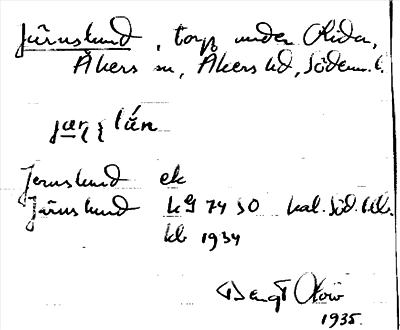 Järnslund, torp under Rida,
Åkers sn, Åkers hd, Söderm. l.
Jernslund ek
Järnslund kg 74 SO
kb 1934
Bengt Olow
1935.